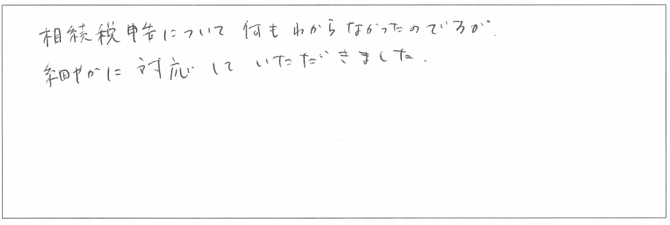 相続税申告について何もわからなかったのですが、
細やかに対応していただきました。